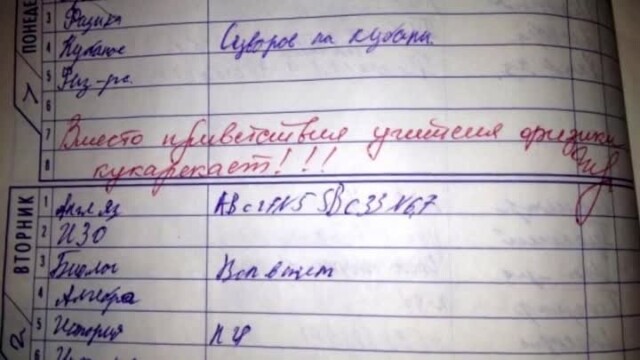 ПОНЕДЕ
3 Физика
4 Кубанов. Суворов на Кубани.
5 Физ-ра.
6
7 Вместо приветствия учителя физики
8 кукарекает!!!
ВТОРНИК
1 Англ яз
2 ИЗО
3 Биолог
4 Алгебра
5 История